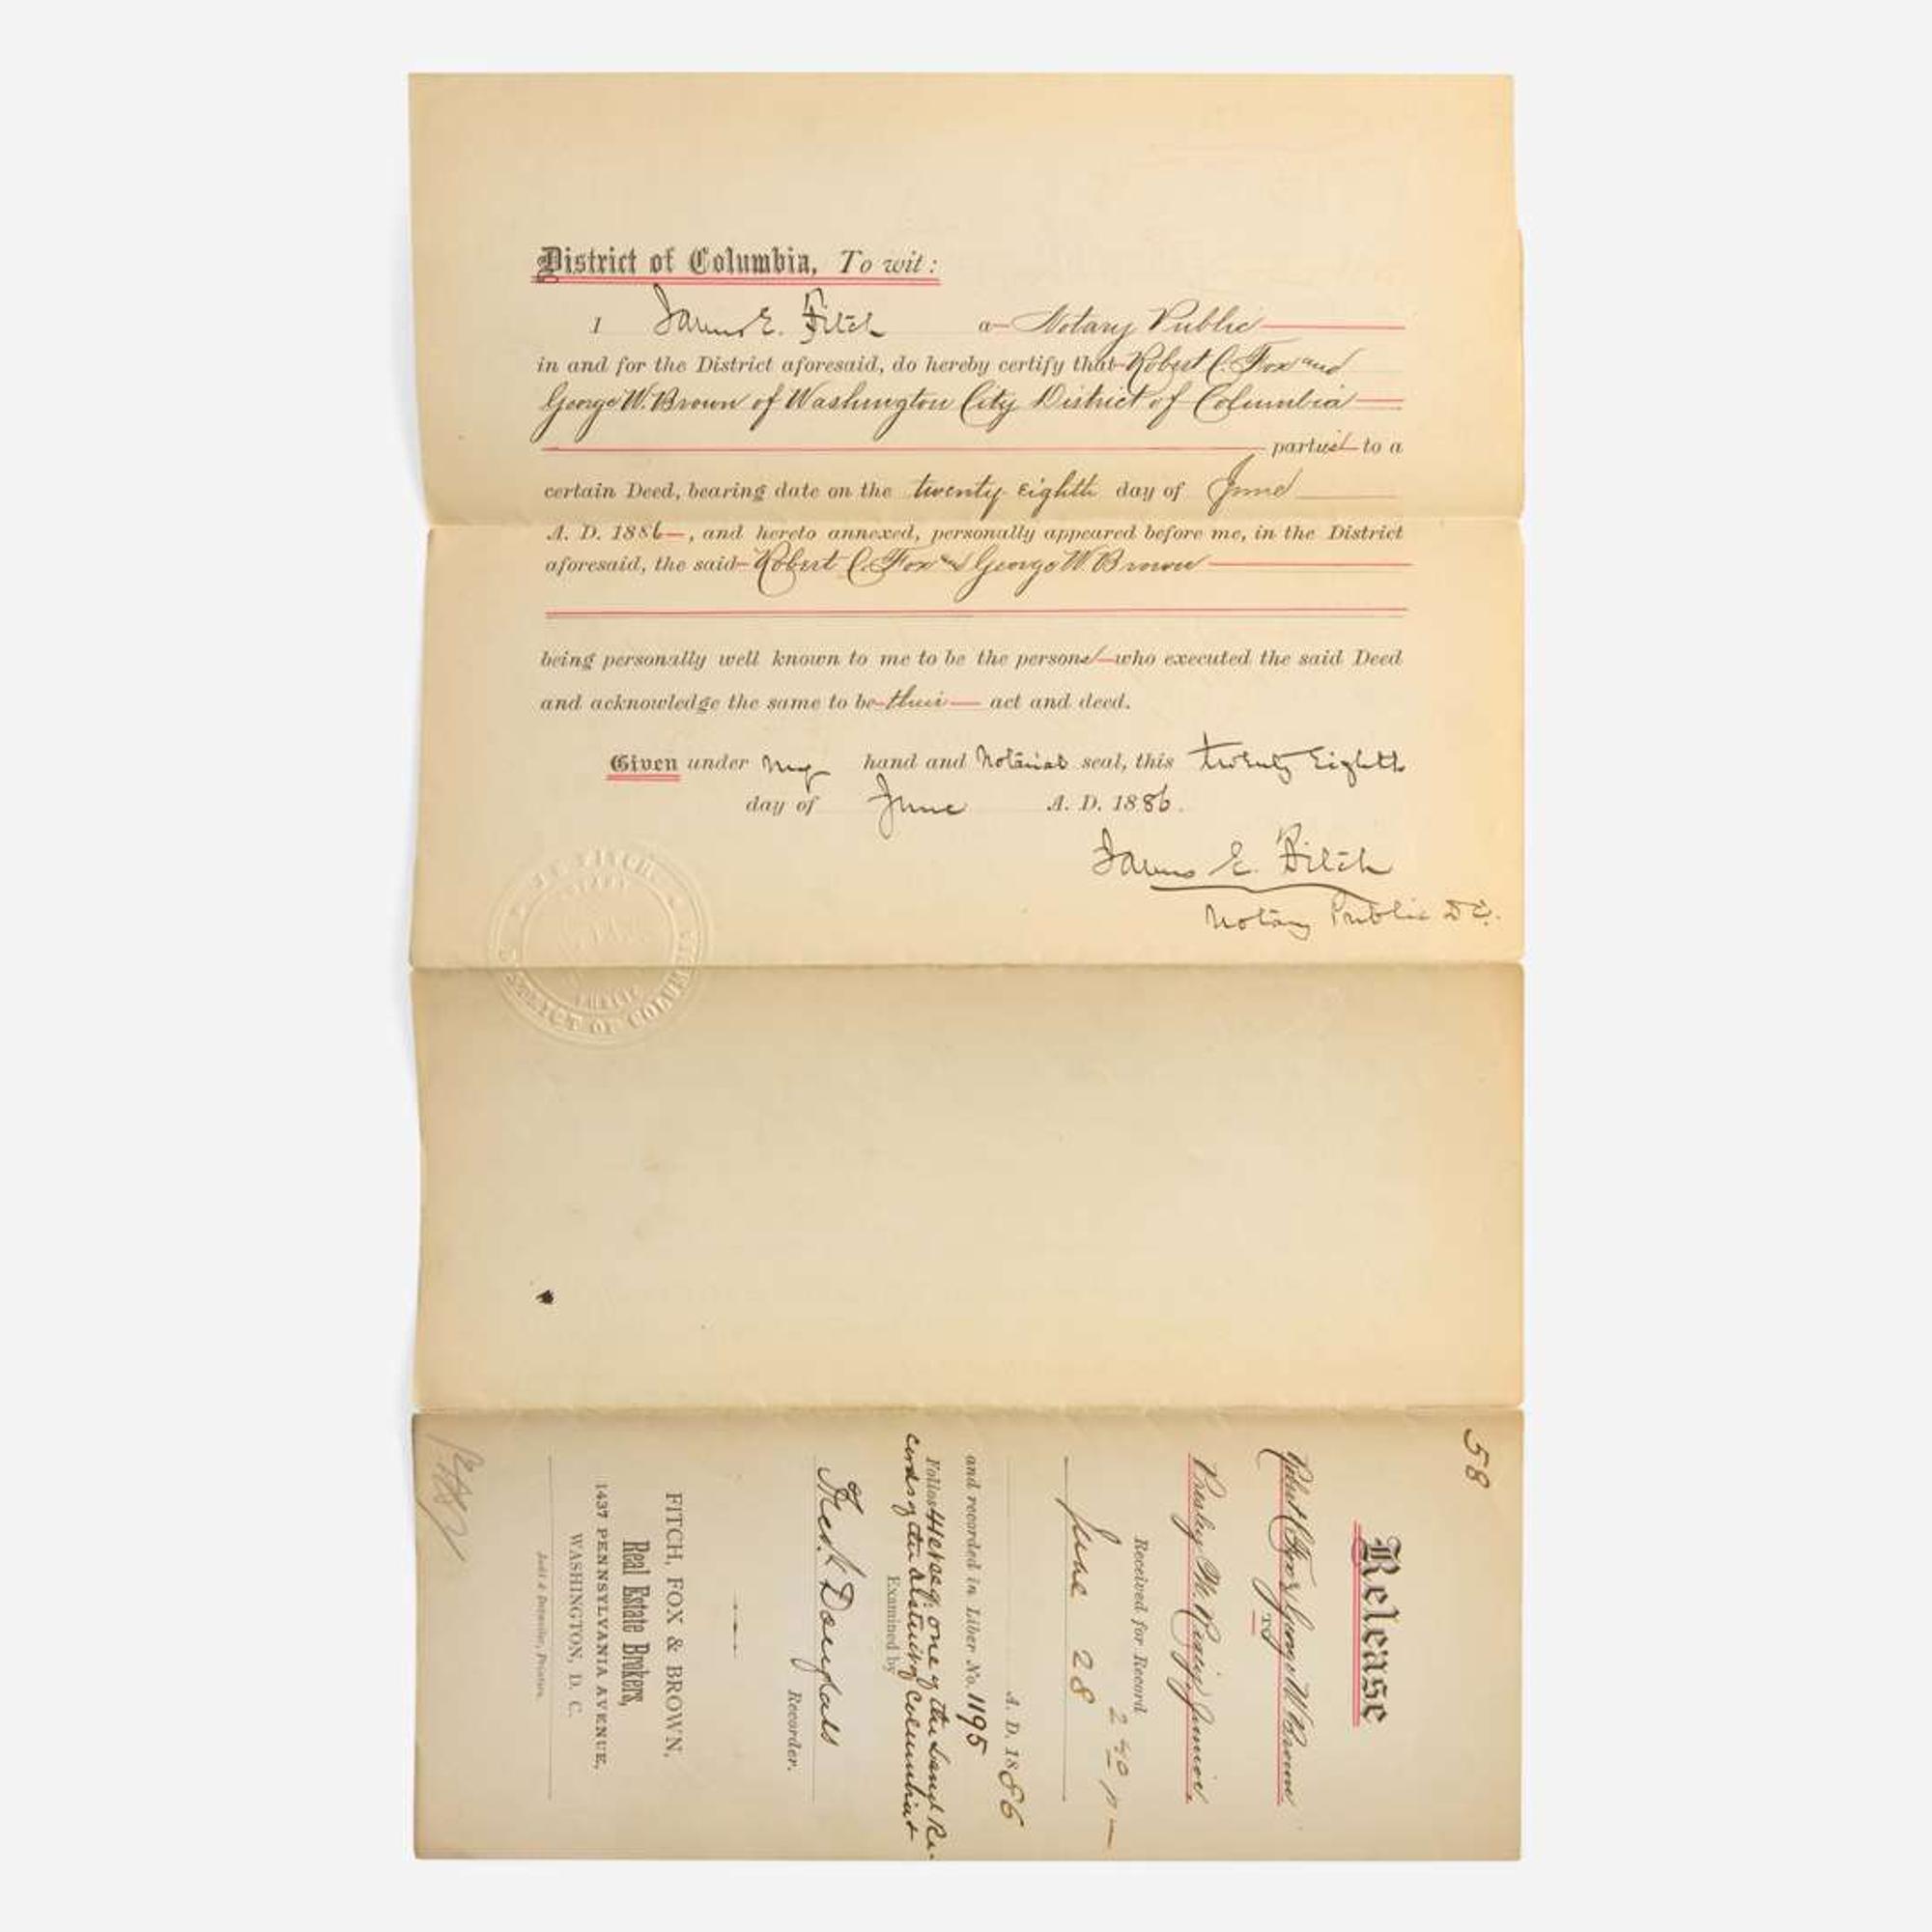 District of Columbia, To wit:
I James E. Fitch a Notary Public
in and for the District aforesaid, do hereby certify that Robert C. Fox and
George W. Brown of Washington City District of Columbia
parties to a
certain Deed, bearing date on the twenty eighth day of June
A. D. 1886, and hereto annexed, personally appeared before me, in the District
aforesaid, the said Robert C. Fox and George W. Brown
being personally well known to me to be the persons who executed the said Deed
and acknowledge the same to be their act and deed.
Given under my hand and Notarial seal, this twenty Eighth
day of June A. D. 1886.
James E. Fitch
Notary Public D.C.
FITCH
PUBLIC
DISTRICT OF COLUMBIA
58
Release
Robert C. Fox & George W. Brown
TO
Presley M. Rixey Junior
Received for Record 2 40 P
June 28
A. D. 1886
and recorded in Liber No. 1195
Folios 441 et seq: one of the Land Re-
cords of the District of Columbia &
Examined by
Fred. Douglass
Recorder.
FITCH, FOX & BROWN,
Real Estate Brokers,
1437 PENNSYLVANIA AVENUE,
WASHINGTON, D. C.
Judd & Detweiler, Printers.